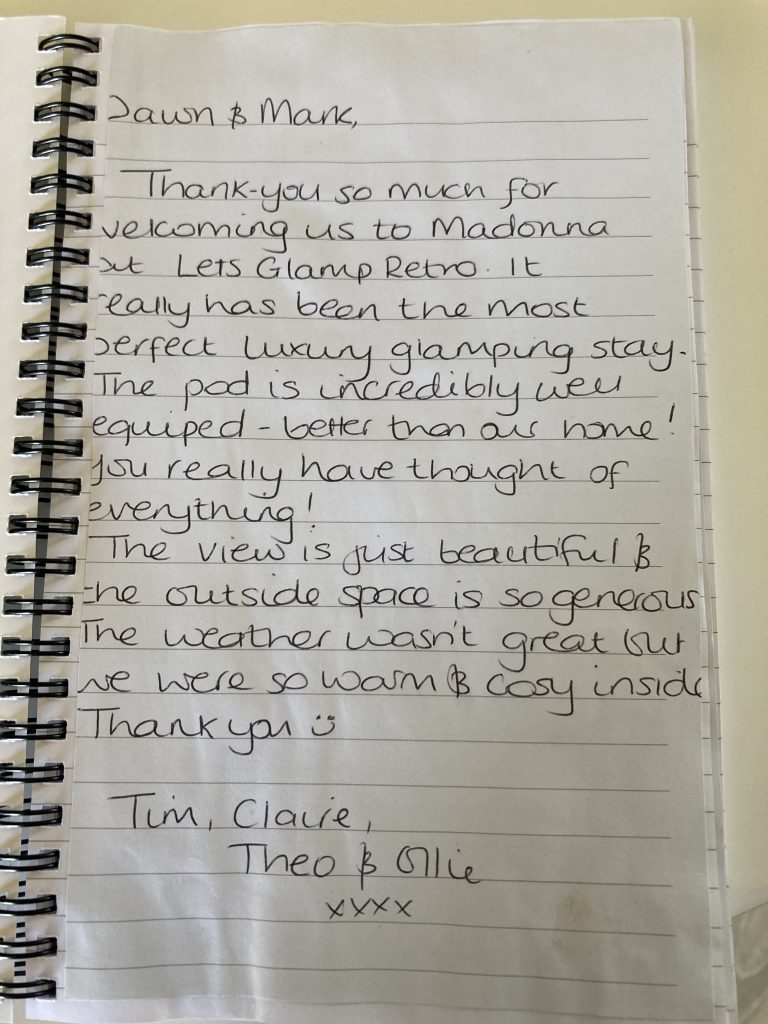 Dawn & Mark,
Thank-you so much for
welcoming us to Madonna
at Lets Glamp Retro. It
really has been the most
perfect luxury glamping stay.
The pod is incredibly well
equiped - better than our home!
You really have thought of
everything!
The view is just beautiful &
the outside space is so generous
The weather wasn't great but
we were so warm & cosy inside
Thank you :)
Tim, Claire,
Theo & Ollie
xxxx